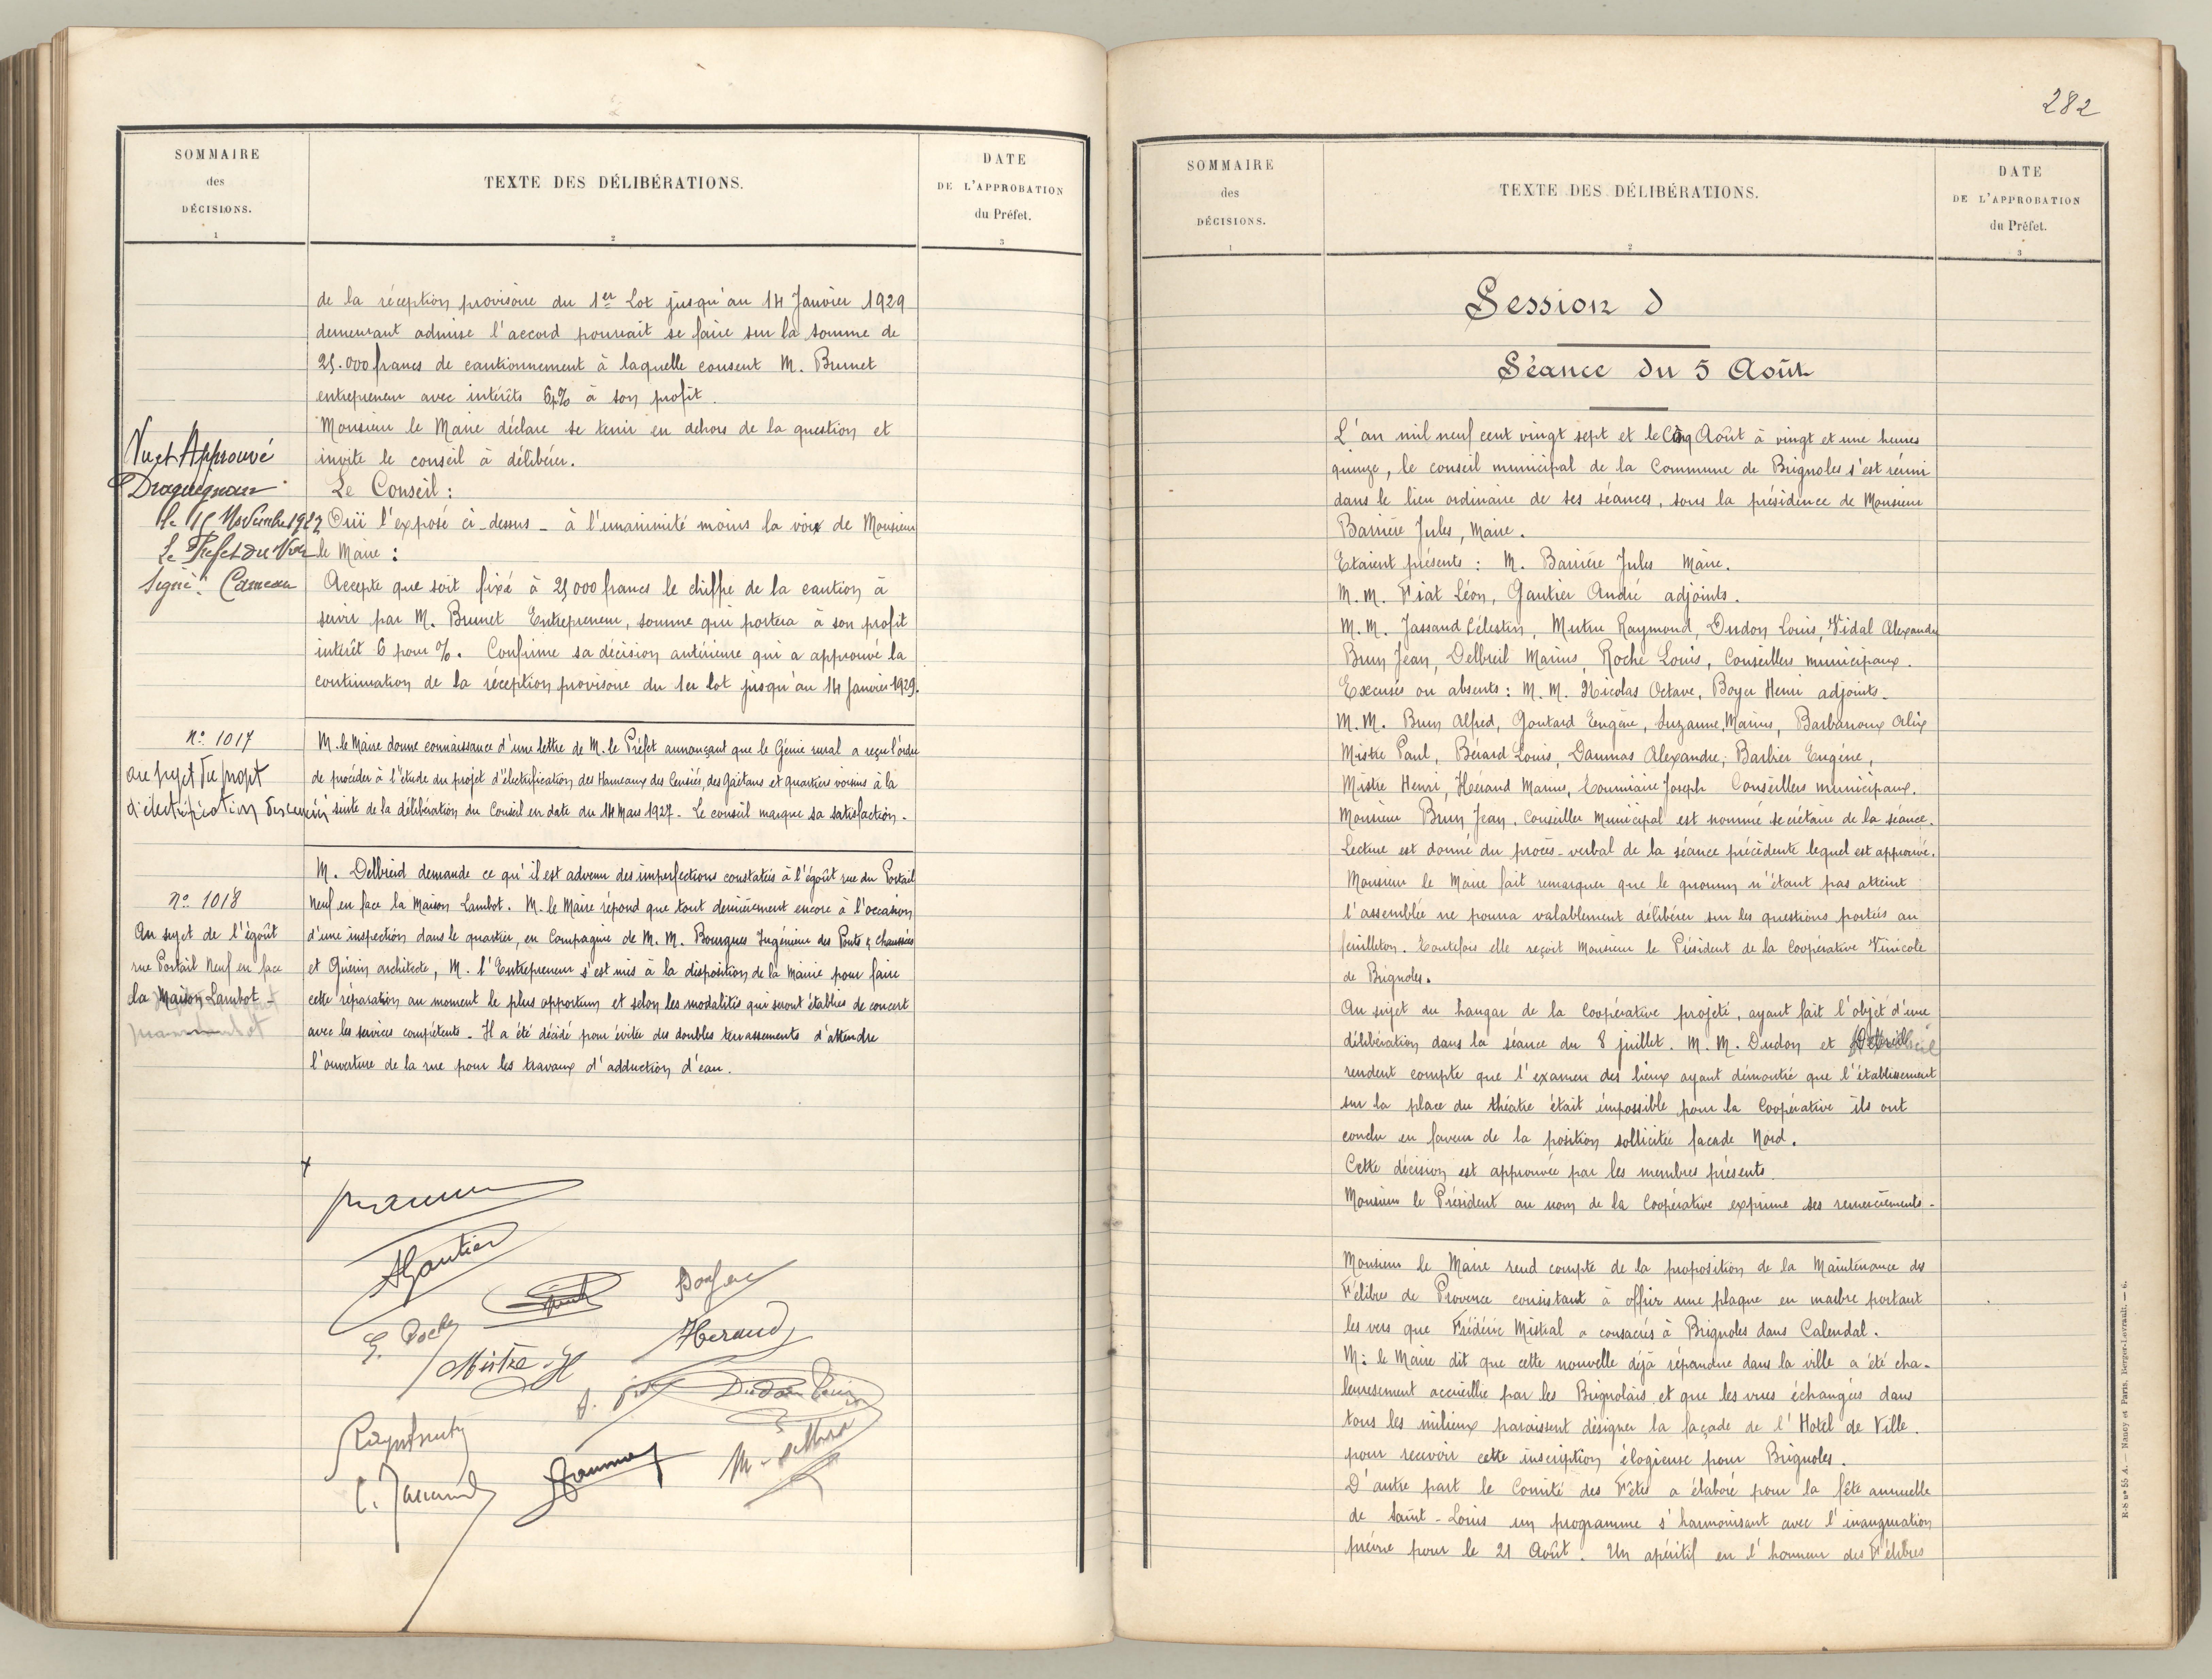 SOMMAIRE
des
DÉCISIONS.
1
TEXTE DES DÉLIBÉRATIONS.
2
DATE
DE L'APPROBATION
du Préfet.
3
de la réception provisoire du 1er Lot jusqu'au 14 Janvier 1929
demeurant admise l'accord pourrait se faire sur la somme de
25.000 francs de cautionnement à laquelle consent M. Brunet
entrepreneur avec intérêts 6% à son profit.
Monsieur le Maire déclare se tenir en dehors de la question et
invite le conseil à délibérer.
Le Conseil :
Ouï l'exposé ci-dessus - à l'unanimité moins la voix de Monsieur
le Maire :
Accepte que soit fixé à 25000 francs le chiffre de la caution à
servir par M. Brunet Entrepreneur, somme qui portera à son profit
intérêt 6 pour %. Confirme sa décision antérieure qui a approuvé la
continuation de la réception provisoire du 1er lot jusqu'au 14 Janvier 1929.
Vu et Approuvé
Draguignan
le 15 Novembre 1927
Le Préfet du Var
Signé :
n° 1017
au sujet du projet
d'électrification des censiés
M. le Maire donne connaissance d'une lettre de M. le Préfet annonçant que le Génie rural a reçu l'ordre
de procéder à l'étude du projet d'électrification des Hameaux des Censiés, des Gaëtans et quartiers voisins à la
suite de la délibération du Conseil en date du 14 Mars 1927. Le conseil marque sa satisfaction.
n° 1018
Au sujet de l'égoût
rue Portail Neuf en face
la Maison Lambot -
M. Delbreid demande ce qu'il est advenu des imperfections constatées à l'égoût rue du Portail
Neuf en face la Maison Lambot. M. le Maire répond que tout dernièrement encore à l'occasion
d'une inspection dans le quartier, en Compagnie de M. M. Bourgues Ingénieur des Ponts & chaussées
et Guérin architecte, M. l'Entrepreneur s'est mis à la disposition de la Mairie pour faire
cette réparation au moment le plus opportun et selon les modalités qui seront établies de concert
avec les services compétents. Il a été décidé pour éviter des doubles terrassements d'attendre
l'ouverture de la rue pour les travaux d'adduction d'eau.
AGautier
Mistre H
Heraud
Dudon Louis
282
SOMMAIRE
des
DÉCISIONS.
1
TEXTE DES DÉLIBÉRATIONS.
2
DATE
DE L'APPROBATION
du Préfet.
3
Session d
Séance du 5 Août
L'an mil neuf cent vingt sept et le Cinq Août à vingt et une heures
quinze, le conseil municipal de la Commune de Brignoles s'est réuni
dans le lieu ordinaire de ses séances, sous la présidence de Monsieur
Barrière Jules, Maire.
Etaient présents : M. Barrière Jules Maire.
M. M. Fiat Léon, Gautier André adjoints.
M. M. Jassaud Célestin, Mutru Raymond, Dudon Louis, Vidal Alexandre
Brun Jean, Delbreil Marius, Roche Louis, Conseillers municipaux.
Excusés ou absents : M. M. Nicolas Octave, Boyer Henri adjoints.
M. M. Brun Alfred, Goutard Eugène, Suzanne Marius, Barbaroux Alix
Mistre Paul, Bérard Louis, Daumas Alexandre, Barbier Eugène,
Mistre Henri, Héraud Marius, Toumiaire Joseph Conseillers municipaux.
Monsieur Brun Jean, Conseiller Municipal est nommé secrétaire de la séance.
Lecture est donné du procès-verbal de la séance précédente lequel est approuvé.
Monsieur le Maire fait remarquer que le quorum n'étant pas atteint
l'assemblée ne pourra valablement délibérer sur les questions portées au
feuilleton. Toutefois elle reçoit Monsieur le Président de la Coopérative Vinicole
de Brignoles.
Au sujet du hangar de la Coopérative projeté, ayant fait l'objet d'une
délibération dans la séance du 8 juillet. M. M. Dudon et Delbreil
rendent compte que l'examen des lieux ayant démontré que l'établissement
sur la place du théatre était impossible pour la Coopérative ils ont
conclu en faveur de la position sollicitée façade Nord.
Cette décision est approuvée par les membres présents.
Monsieur le Président au nom de la Coopérative exprime ses remerciements.
Monsieur le Maire rend compte de la proposition de la Maintenance des
Félibres de Provence consistant à offrir une plaque en marbre portant
les vers que Frédéric Mistral a consacrés à Brignoles dans Calendal.
M. le Maire dit que cette nouvelle déjà répandue dans la ville a été cha-
leuresement accueillie par les Brignolais et que les vues échangées dans
tous les milieux paraissent désigner la façade de l'Hotel de Ville
pour recevoir cette inscription élogieuse pour Brignoles.
D'autre part le Comité des Fêtes a élaboré pour la fête annuelle
de Saint-Louis un programme s'harmonisant avec l'inauguration
prévue pour le 21 Août. Un apéritif en l'honneur des Félibres
R-S n° 55 A. — Nancy et Paris, Berger-Levrault. — 6.